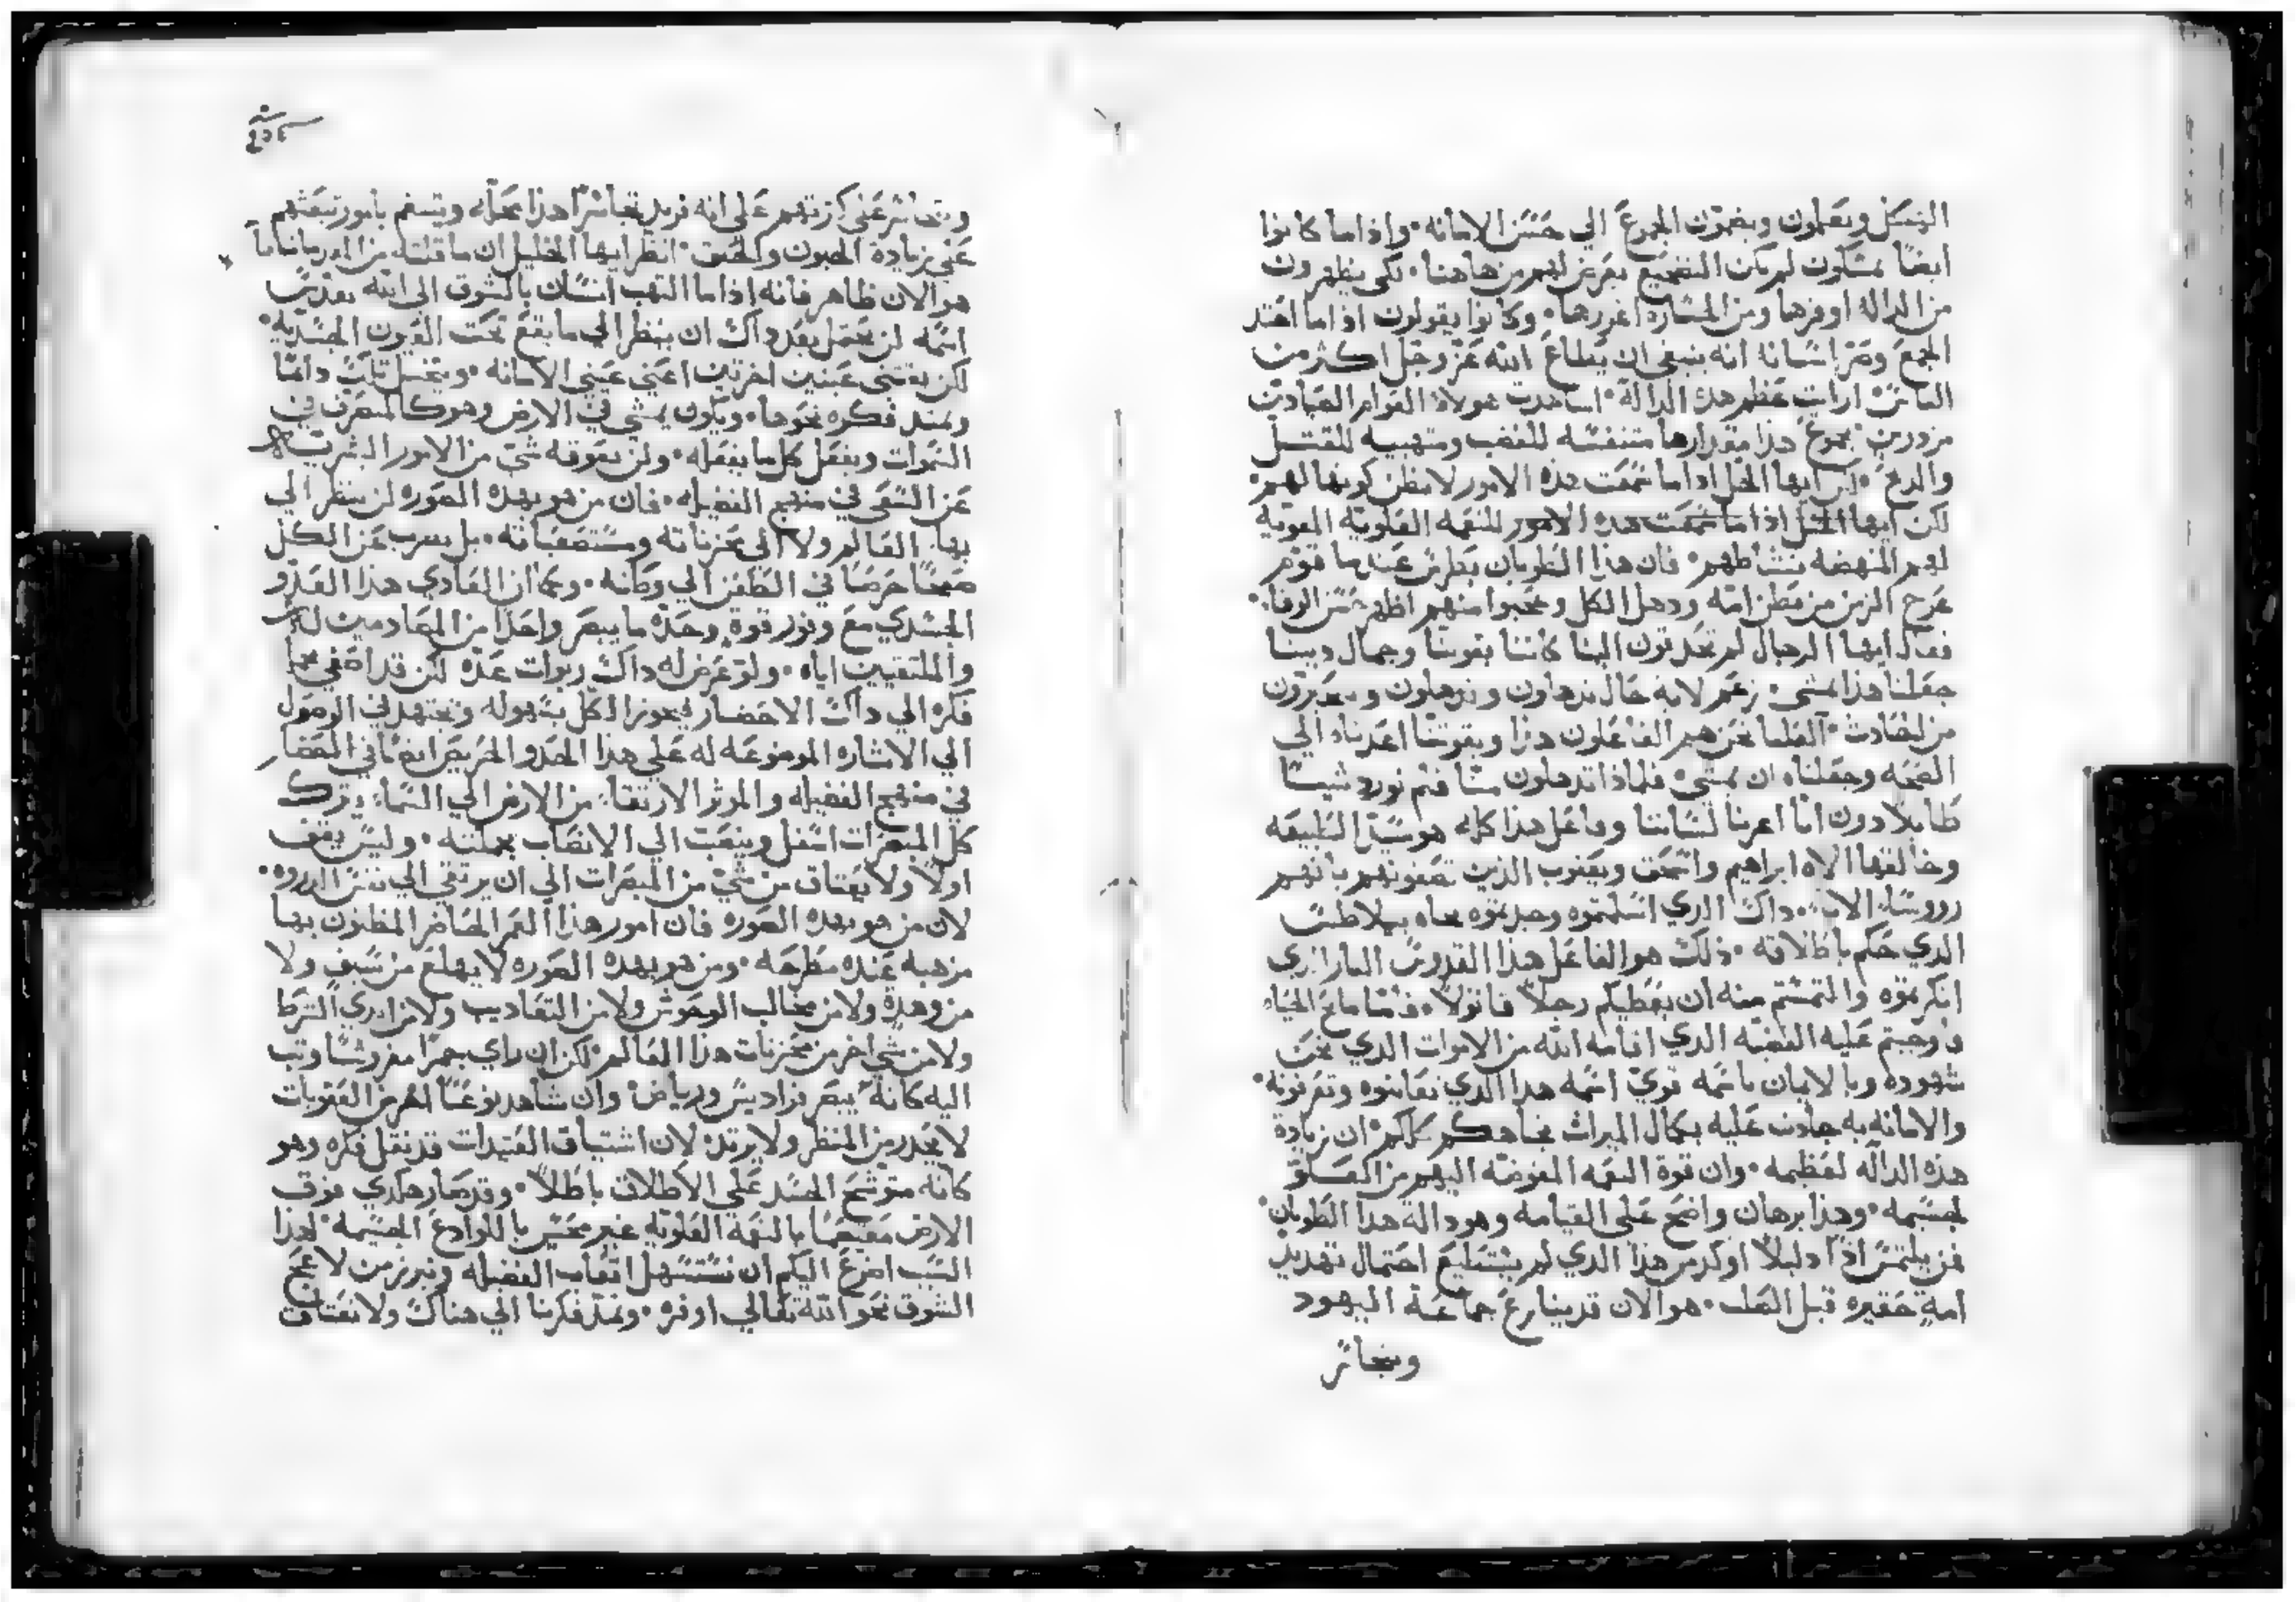 الهيكل ويعلمون ويضمون الجموع الي حسن الامانه · واذا ما كانوا
ايضاً يمسكون لم يكن التضجيع يعرض لهم من هاهنا · لكي يظهرون
من الدالة اوفرها ومن المساره اغزرها · وكانوا يقولون اذا ما احتد
الجمع انه ينبغي ان يطاع الله عز وجل اكثر من
الناس ارايت عظم هذه الدالة · اشاهدت هولاء القوام العبادين
جموع هذا مقدارها متنفسه للغضب ومتهيبه للقتل
لكن ايها الخل اذا ما سمعت هذه الامور لا تظن كونها لهم ·
لكن ايها الخل اذا ما سمعت هذه الامور للنعمه العلويه المقويه
لهم المنهضه نشاطهم · فان هذا الطوبان بطرس عندما قوم
عرج الزمن من بطن امه وذهل الكل وعجبوا منهم اظهر حسن الوفاء ·
فقال ايها الرجال لم تحدقون الينا كاننا بقوتنا وجمال ديننا
جعلنا هذا يمشي · زعم لايه حال تدهلون وتوهلون
من الحادث · العلنا نحن هم الفاعلون هذا وبقوتنا اعدناه الي
الصحه وجعلناه ان يمشي · فلماذا تدهلون منا فلم نورد شيئا
طايلا دون انا اعرنا لساننا وفاعل هذا كله هو سيد الطبيعه
وخالقها الاه ابراهيم واسحق ويعقوب الذين تصفونهم بانهم
رووسا الابا · داك الدي اسلمتوه وجحدتموه تجاه بيلاطس
الدي حكم باطلاقه · ذلك هو الفاعل هذا القدوس البار الذي
انكرتموه والتمستم منه ان يعطيكم رجلاً قاتولاً · فاما مانح الحياه
فاوجبتم عليه القضيه الدي اقامه الله من الاموات الذي نحن
شهوده وبالايمان باسمه قوي اسمه هدا الدي تعاينوه وتعرفونه ·
والامانه به جادت عليه بكمال الميراث تجاهكم كلكم · ان زيادة
هذه الداله لعظيمه · وان قوة النعمه المفوضه اليهم من العلو
لجسيمه · وهذا برهان واضح على القيامه وهو دالة هذا الطوبان ·
فمن يلتمس اذاً دليلاً اوكد من هذا الدي لم يستطيع احتمال تهديد
امة حقيره قبل الصلب · هو الان قد ينازع جماعة اليهود
ويتجاسر
على انه قريد تجاسراً هذا محله ويتسغم بامور تبعثهم
على زيادة الجنون والحنق · انظر ايها الخليل ان ما قلته من
هو الان ظاهر فانه اذا ما التهب انسان بالشوق الي الله تقدس
اسمه لن يحتمل بعد داك ان ينظر الي ما يقع تحت العيون الجسديه ·
لكن يقتني عينين اخرتين اعني عيني الامانه · ويتخيل تلك دائما
ويمتد فكره نحوها · ويكون يمشي في الارض وهو كالمتصرف في
السموات ويفعل كل ما يفعله · ولن يعوقه شي من الامور البشريه
عن السعي في منهج الفضيله · فان من هو بهذه الصوره لن ينظر الي
بها العالم ولا الي محزناته ومستصعباته · بل يهرب عن الكل
حرصاً في الظعن الي وطنه · وكما ان الغادي هذا الغدو
الجسدي مع وفور قوة وحده ما يبصر واحداً من المصادمين له
والملتقيين اياه · ولو عرض له داك ربوات عده لكن قد اصغي
فكره الي داك الاحضار يجوز الكل بسهوله ويجتهد في الوصول
الي الاشاره الموضوعه له على هذا الحدو الحريص ايضاً في الحضار
في منهج الفضيله والموثر الارتقاء من الارض الي السماء يترك
كل المبصرات اسفل وينعت الي الانصاب بجملته · وليس يقف
اولاً ولا يعتاق من شي من المبصرات الي ان يرتقي الي نفس الدروه ·
لان من هو بهده الصوره فان امور هذا العمر الحاضر المظنون بها
مرهبه عنده مطرحه · ومن هو بهده الصوره لا يهلع من سيف ولا
من وهدة ولا من مخالب الوحوش ولا من التعاديب ولا من ايدي الشرط
ولا من شي اخر من محزنات هذا العالم · لكن ان راي جمراً مفروشا وتب
اليه كانه يبصر فراديس ورياض · وان شاهد نوعاً اخر من العقوبات
لا يخدر من المنظر ولا يرتد لان اشتياق العتيدات قد نقل فكره وهو
كانه متوشح الجسد على الاطلاق باطلاً · وقد صار هكدي فوق
الارض بالنعمة العلويه غير محس باللوادع الجسيمه · لهذا
السبب اضرع اليكم ان نستسهل اتعاب الفضيله
الشوق نحو الله تعالي اوفره · ونمد فكرنا الي هناك ولا نعتاق